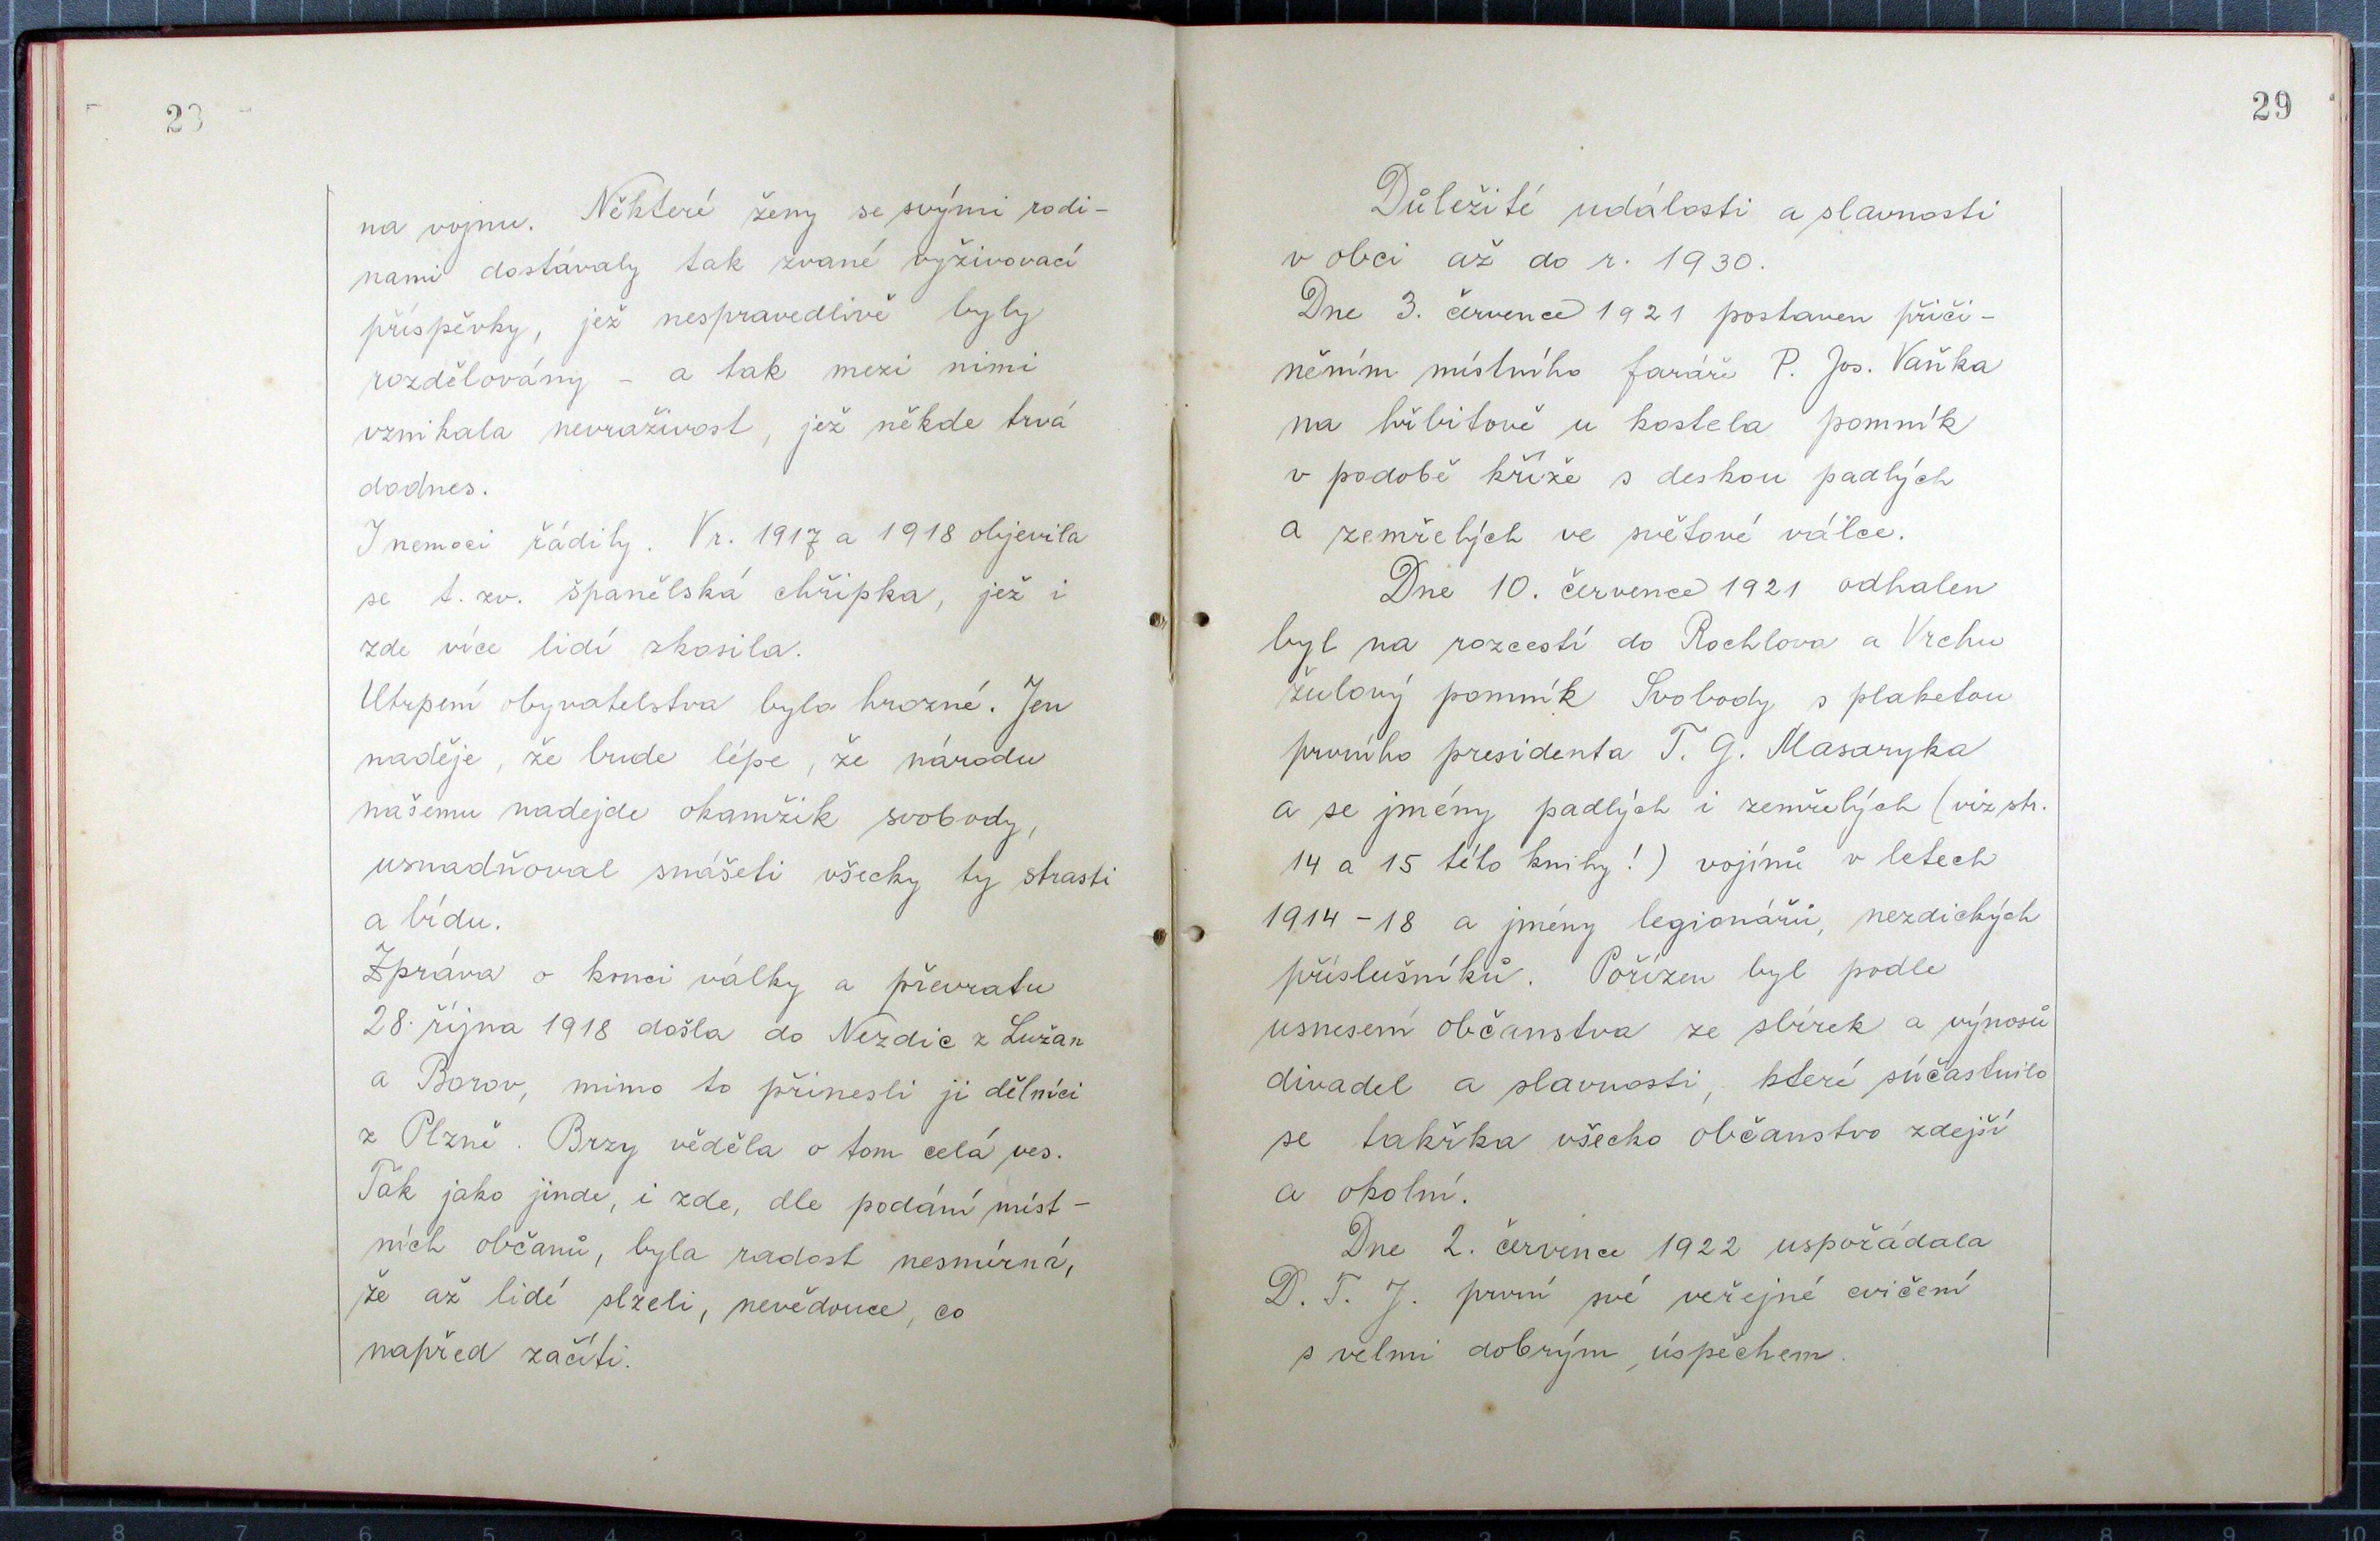 28
na vojnu. Některé ženy se svými rodi-
nami dostávaly tak zvané vyživovací
příspěvky, jež nespravedlivě byly
rozdělovány - a tak mezi nimi
vznikala nevraživost, jež někde trvá
dodnes.
I nemoci řádily. V r. 1917 a 1918 objevila
se t. zv. španělská chřipka, jež i
zde více lidí skosila.
Utrpení obyvatelstva bylo hrozné. Jen
naděje, že bude lépe, že národu
našemu nadejde okamžik svobody,
usnadňoval snášeti všecky ty strasti
a bídu.
Zpráva o konci války a převratu
28. října 1918 došla do Nezdic z Lužan
a Borov, mimo to přinesli ji dělníci
z Plzně. Brzy věděla o tom celá ves.
Tak jako jinde, i zde, dle podání míst-
ních občanů, byla radost nesmírná,
že až lidé slzeli, nevědouce, co
napřed začíti.
29
Důležité události a slavnosti
v obci až do r. 1930.
Dne 3. července 1921 postaven přiči-
něním místního faráře P. Jos. Vaňka
na hřbitově u kostela pomník
v podobě kříže s deskou padlých
a zemřelých ve světové válce.
Dne 10. července 1921 odhalen
byl na rozcestí do Rochlova a Vrchu
žulový pomník Svobody s plaketou
prvního presidenta T. G. Masaryka
a se jmény padlých i zemřelých (viz str.
14 a 15 této knihy!) vojínů v letech
1914-18 a jmény legionářů, nezdických
příslušníků. Pořízen byl podle
usnesení občanstva ze sbírek a výnosů
divadel a slavnosti, které súčastnilo
se takřka všecko občanstvo zdejší
a okolní.
Dne 2. července 1922 uspořádala
D. T. J. první své veřejné cvičení
s velmi dobrým úspěchem.
8 7 6 5 4 3 2 1 1 2 3 4 5 6 7 8 9 10